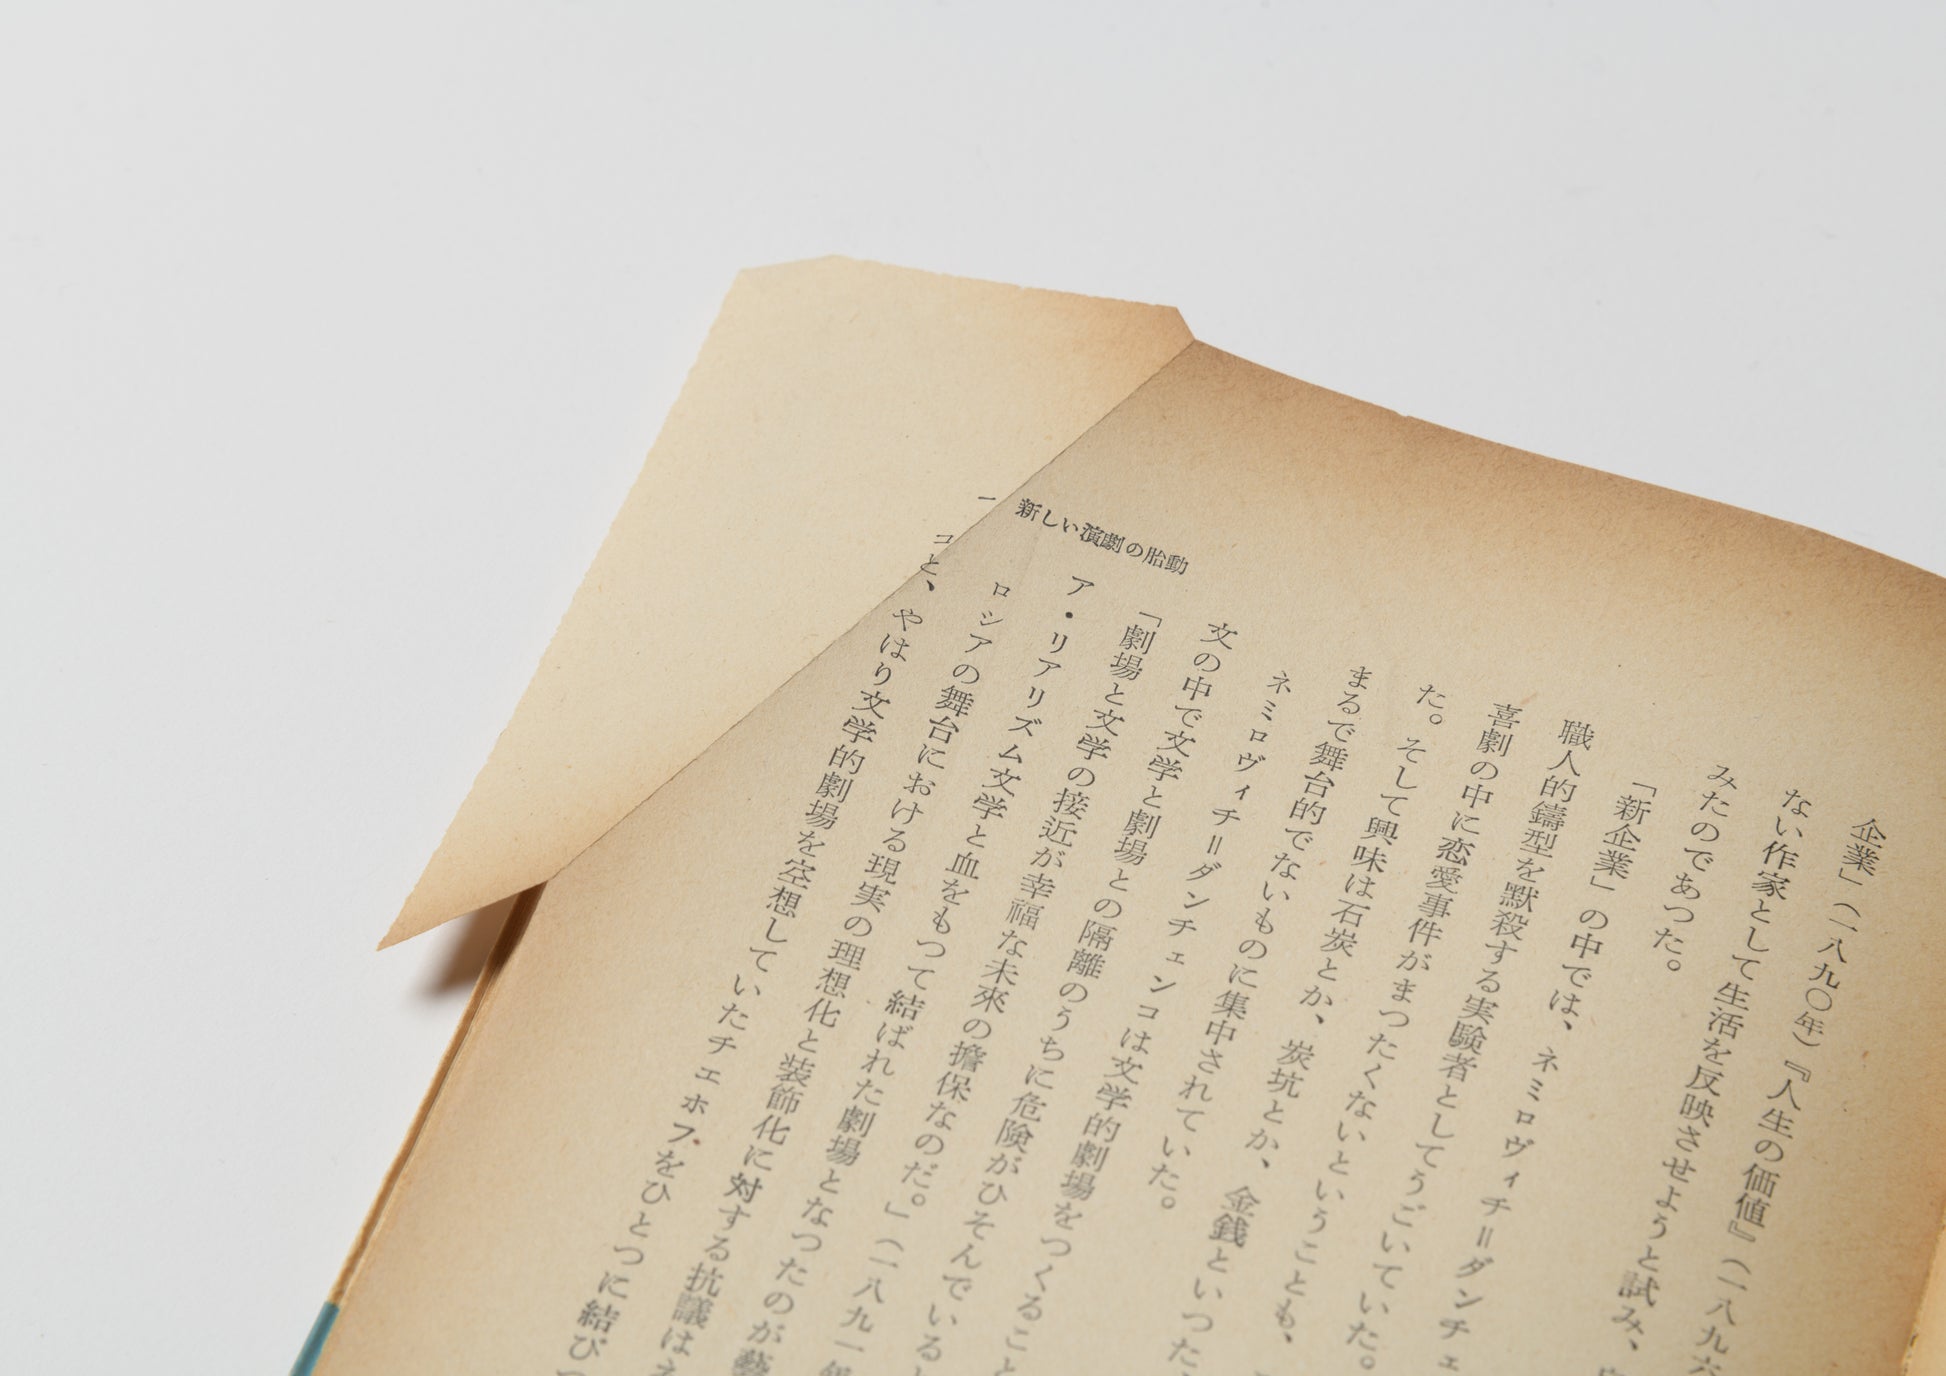 一 新しい演劇の胎動
企業」（一八九〇年）『人生の価値』（一八九六
ない作家として生活を反映させようと試み、
みたのであつた。
「新企業」の中では、ネミロヴィチ＝ダンチェ
職人的鑄型を默殺する実験者としてうごいていた。
喜劇の中に恋愛事件がまつたくないということも、
た。そして興味は石炭とか、炭坑とか、金銭といつた
まるで舞台的でないものに集中されていた。
ネミロヴィチ＝ダンチェンコは文学的劇場をつくること
文の中で文学と劇場との隔離のうちに危険がひそんでいると
「劇場と文学の接近が幸福な未來の擔保なのだ。」（一八九一年
ア・リアリズム文学と血をもつて結ばれた劇場となつたのが藝
ロシアの舞台における現実の理想化と装飾化に対する抗議は
コと、やはり文学的劇場を空想していたチェホフをひとつに結び